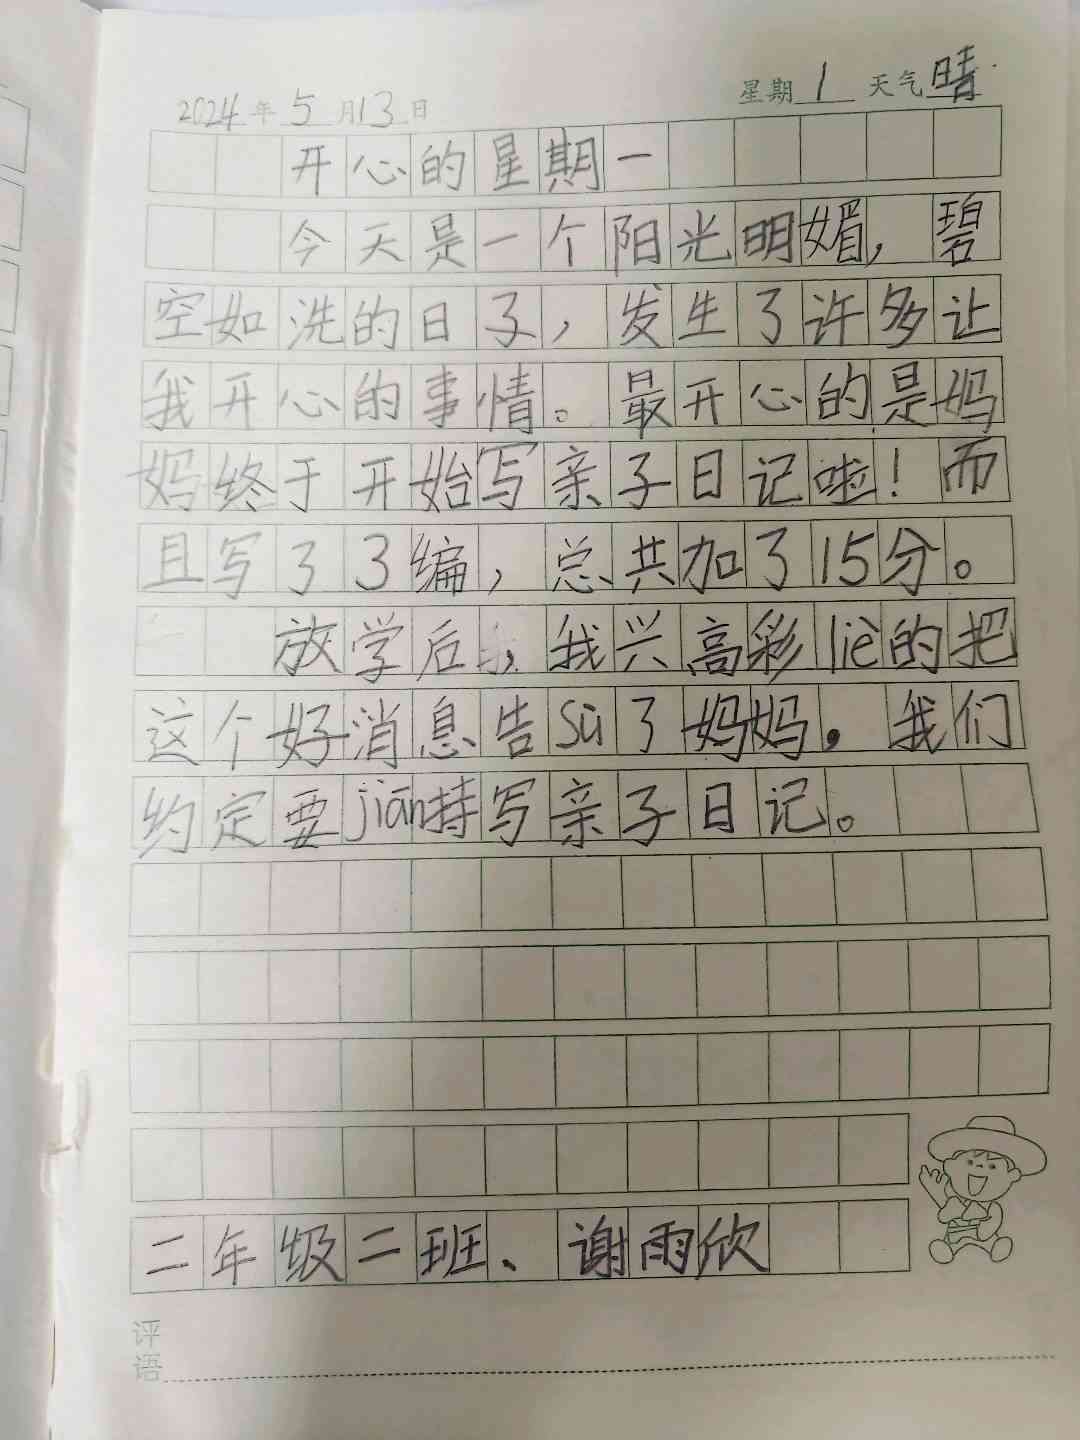 2024年5月13日 星期1 天气晴
开心的星期一
今天是一个阳光明媚，碧
空如洗的日子，发生了许多让
我开心的事情。最开心的是妈
妈终于开始写亲子日记啦！而
且写了3编，总共加了15分。
放学后，我兴高彩liè的把
这个好消息告sù了妈妈。我们
约定要jiān持写亲子日记。
二年级二班、谢雨欣
评语